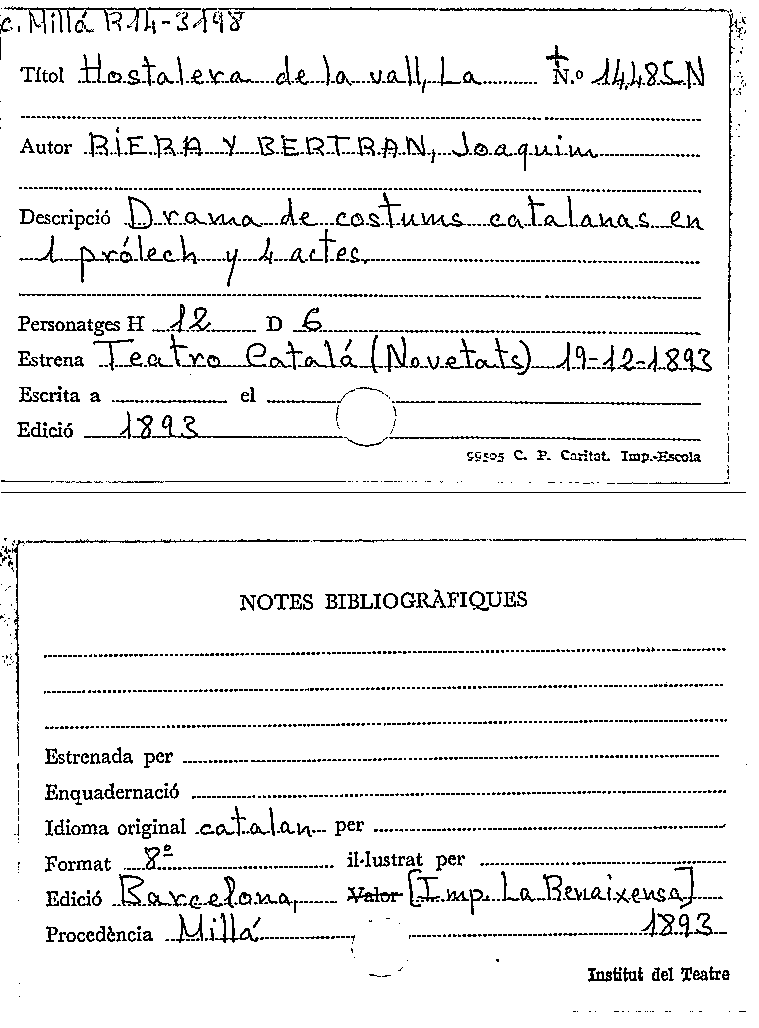 c. Millá R14-3198
Títol Hostalera de la vall, La N.º 14.485N
Autor RIERA Y BERTRAN, Joaquim
Descripció Drama de costums catalanas en
1 prólech y 4 actes.
Personatges H 12 D 6
Estrena Teatro Catalá (Novetats) 19-12-1893
Escrita a el
Edició 1893
99505 C. P. Caritat. Imp.-Escola
NOTES BIBLIOGRÀFIQUES
Estrenada per
Enquadernació
Idioma original catalan per
Format 8º il·lustrat per
Edició Barcelona, Valor [Imp. La Renaixensa]
Procedència Millá 1893
Institut del Teatre